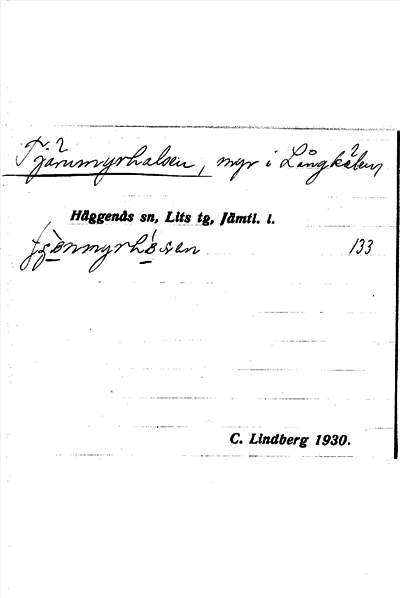 Tjärnmyrhalsen, myr i Långkälen,
Häggenås sn, Lits tg, Jämtl. l.
133
C. Lindberg 1930.